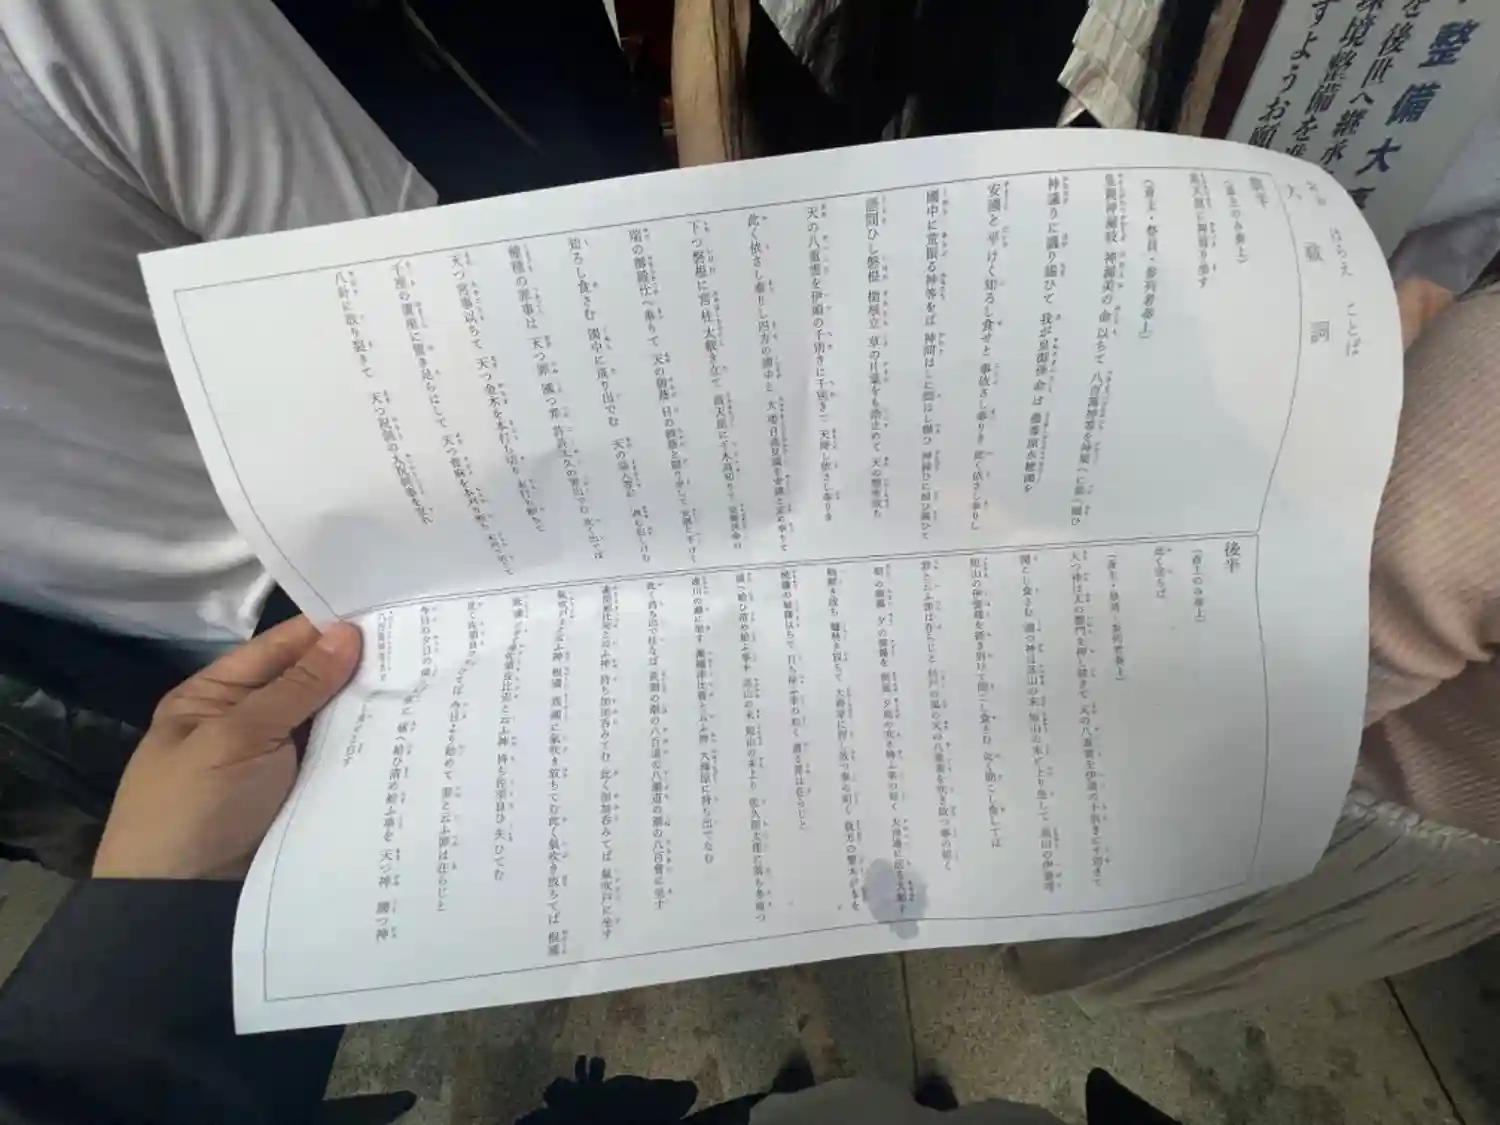 整備大
を後世へ継承
環境整備を
すようお願
おお はらえ ことば
大 祓 詞
前半
(斎主のみ奏上)
高天原に神留り坐す
(斎主・祭員・参列者奏上)
皇親神漏岐 神漏美の命以ちて 八百萬神等を神集へに集へ賜ひ
神議りに議り賜ひて 我が皇御孫命は 豊葦原水穂國を
安國と平けく知ろし食せと 事依さし奉りき 此く依さし奉りし
國中に荒振る神等をば 神問はしに問はし賜ひ 神掃ひに掃ひ賜ひて
語問ひし磐根 樹根立 草の片葉をも語止めて 天の磐座放ち
天の八重雲を伊頭の千別きに千別きて 天降し依さし奉りき
此く依さし奉りし四方の國中と 大倭日高見國を安國と定め奉りて
下つ磐根に宮柱 太敷き立て 高天原に千木高知りて 皇御孫命の
瑞の御殿仕へ奉りて 天の御蔭 日の御蔭と隠り坐して 安國と平けく
知ろし食さむ 國中に成り出でむ 天の益人等が 過ち犯しけむ
種種の罪事は 天つ罪 國つ罪 許許太久の罪出でむ 此く出でば
天つ宮事以ちて 天つ金木を本打ち切り 末打ち断ちて
千座の置座に置き足らはして 天つ菅麻を本刈り断ち 末刈り切りて
八針に取り裂きて 天つ祝詞の太祝詞事を宣れ
後半
(斎主のみ奏上)
此く宣らば
(斎主・祭員・参列者奏上)
天つ神は天の磐門を押し披きて 天の八重雲を伊頭の千別きに千別きて
聞こし食さむ 國つ神は高山の末 短山の末に上り坐して 高山の伊褒理
短山の伊褒理を掻き別けて聞こし食さむ 此く聞こし食してば
罪と云ふ罪は在らじと 科戸の風の天の八重雲を吹き放つ事の如く
朝の御霧 夕の御霧を 朝風 夕風の吹き拂ふ事の如く 大津邊に居る大船を
舳解き放ち 艫解き放ちて 大海原に押し放つ事の如く 彼方の繁木が本を
焼鎌の敏鎌以ちて 打ち掃ふ事の如く 遺る罪は在らじと
祓へ給ひ清め給ふ事を 高山の末 短山の末より 佐久那太理に落ち多岐つ
速川の瀬に坐す 瀬織津比賣と云ふ神 大海原に持ち出でなむ
此く持ち出で往なば 荒潮の潮の八百道の八潮道の潮の八百會に坐す
速開都比賣と云ふ神 持ち加加呑みてむ 此く加加呑みてば 氣吹戸に坐す
氣吹戸主と云ふ神 根國 底國に氣吹き放ちてむ 此く氣吹き放ちてば 根國
底國 佐須良比賣と云ふ神 持ち佐須良ひ失ひてむ
此く佐須良 ば 今日より始めて 罪と云ふ罪は在らじと
今日の夕日の 祓へ給ひ清め給ふ事を 天つ神 國つ神
八百萬神等